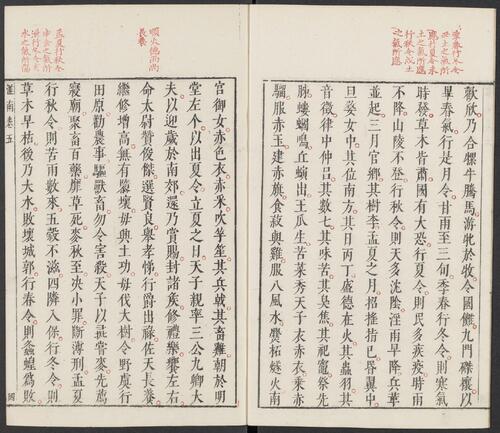 季春行冬令
丑土之氣所
應行夏令未
土之氣所應
行秋令戌土
之氣所應
歡欣乃合㹎牛騰馬游牝於牧令國儺九門磔攘以
畢春氣行是月令甘雨至三旬季春行冬令則寒氣
時發草木皆肅國有大恐行夏令則民多疾疫時雨
不降山陵不登行秋令則天多沈陰淫雨早降兵革
並起三月官鄉其樹李孟夏之月招搖指巳昏翼中
旦婺女中其位南方其日丙丁盛德在火其蟲羽其
音徵律中仲呂其數七其味苦其臭焦其祀竈祭先
肺螻蟈鳴丘螾出王瓜生苦菜秀天子衣赤衣乘赤
騮服赤玉建赤旗食菽與雞服八風水爨柘燧火南
順火德而
長養
孟夏行秋令
申金之氣所
行冬令亥
水之氣所傷
宮御女赤色衣赤采吹竽笙其兵戟其畜雞朝於明
堂左个以出夏令立夏之日天子親率三公九卿大
夫以迎歲於南郊還乃賞賜封諸侯修禮樂饗左右
命太尉贊俊傑選賢良舉孝悌行爵出祿佐天長養
繼修增高無有隳壞毋興土功毋伐大樹令野虞行
田原勸農事驅獸畜勿令害穀天子以彘嘗麥先薦
寢廟聚畜百藥靡草死麥秋至決小罪斷薄刑孟夏
行秋令則苦雨數來五穀不滋四鄰入保行冬令則
草木早枯後乃大水敗壞城郭行春令則螽蝗為敗
淮南卷五
四